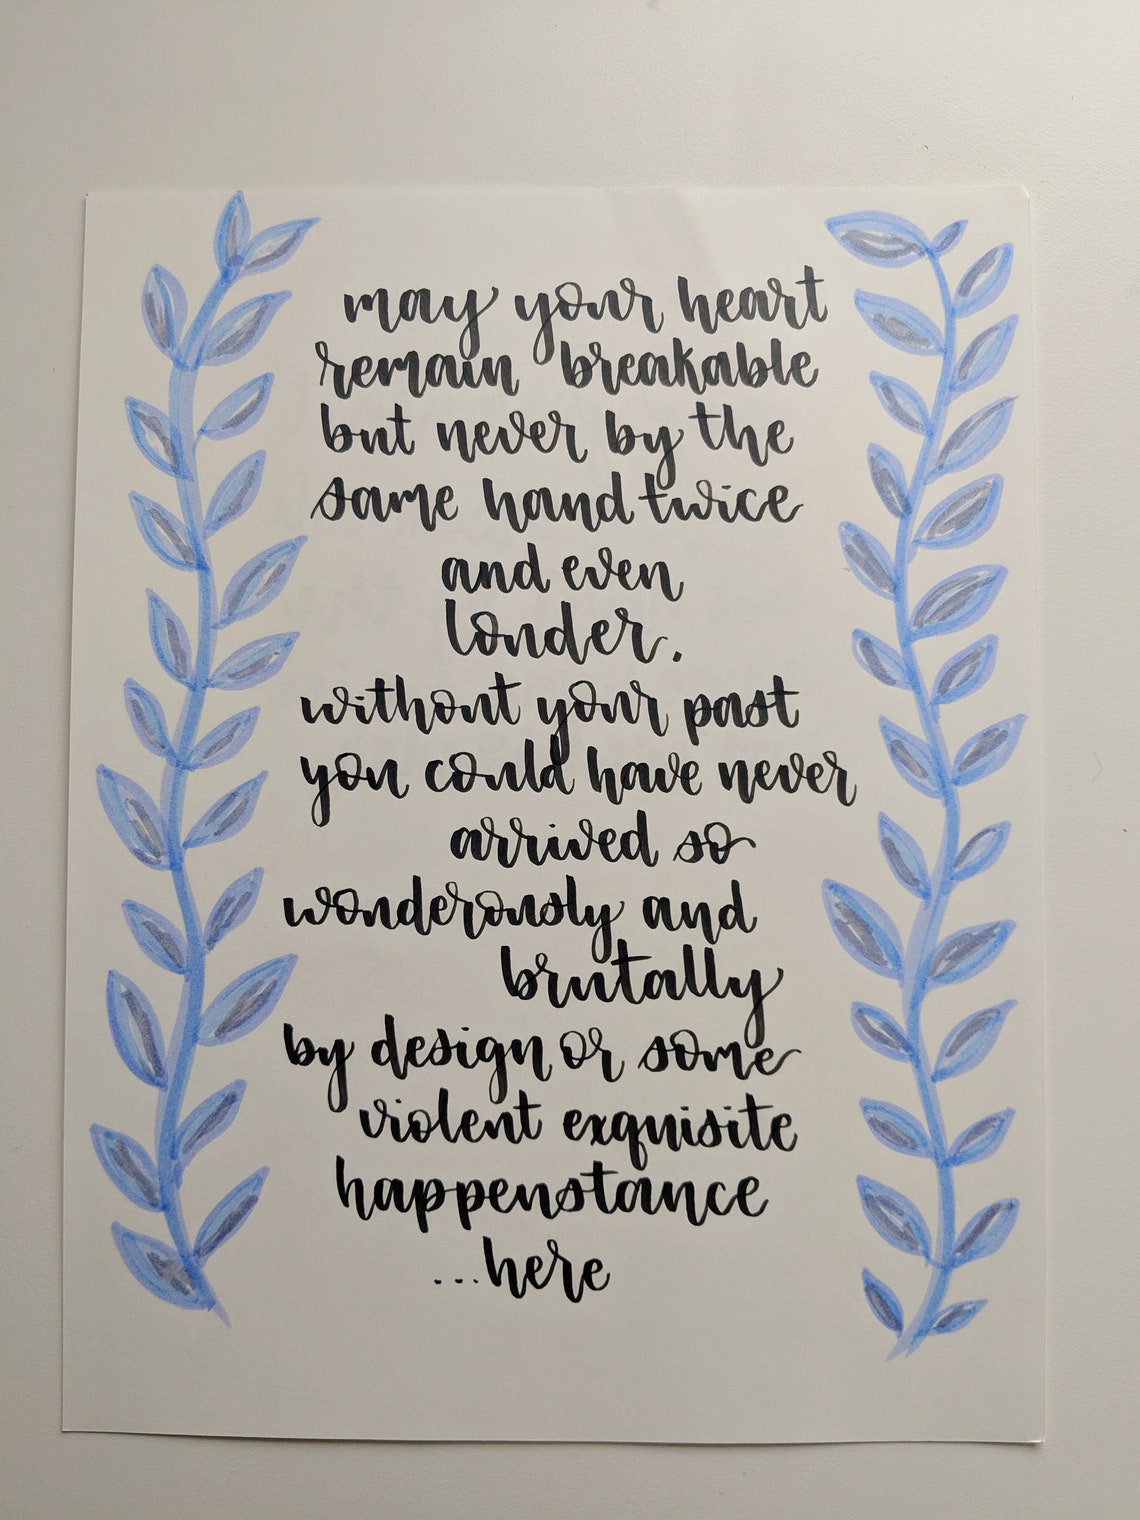 may your heart
remain breakable
but never by the
same hand twice
and even
londer.
without your past
you could have never
arrived so
wonderously and
brutally
by design or some
violent exquisite
happenstance
...here